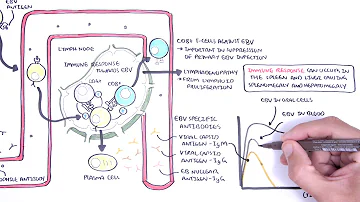 EBV
ANTIGEN
LYMPH NODE
IMMUNE RESPONSE
TOWARDS EBV
CD8+
CD4+
CD8+
PLASMA CELL
CD8+ T-CELLS AGAINST EBV
→ IMPORTANT IN SUPPRESSION
OF PRIMARY EBV INFECTION
→ LYMPHADENOPATHY
→ FROM LYMPHOID
PROLIFERATION
EBV SPECIFIC
ANTIBODIES
→ VIRAL CAPSID
ANTIGEN - IgM
→ VIRAL CAPSID
ANTIGEN - IgG
→ EB NUCLEAR
ANTIGEN - IgG
IMMUNE RESPONSE CAN OCCUR IN
THE SPLEEN AND LIVER CAUSING
SPLENOMEGALY AND HEPATOMEGALY
EBV IN ORAL CELLS
EBV IN BLOOD